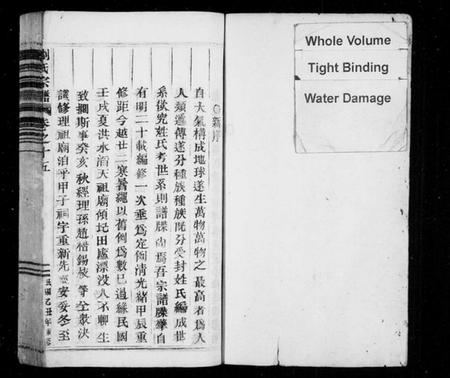 新序
自大氣構成地球遂生萬物萬物之最高者爲人
人類遞傳遂分種族種族既分受封姓氏編成世
系欲究姓氏考世系則譜牒尚焉吾宗譜牒肇自
有明二十載編修一次垂爲定例清光緒甲辰重
修距今越廿二寒暑繩以舊例爲數已過緣民國
壬戌夏洪水滔天祖廟傾圮田廬漂没人不聊生
致擱斯事癸亥秋經理孫趙惜錫棪等僉議決
議修理祖廟泊平甲子祠宇重新先妥安冬至
劉氏宗譜
民國乙丑年重修
Whole Volume
Tight Binding
Water Damage